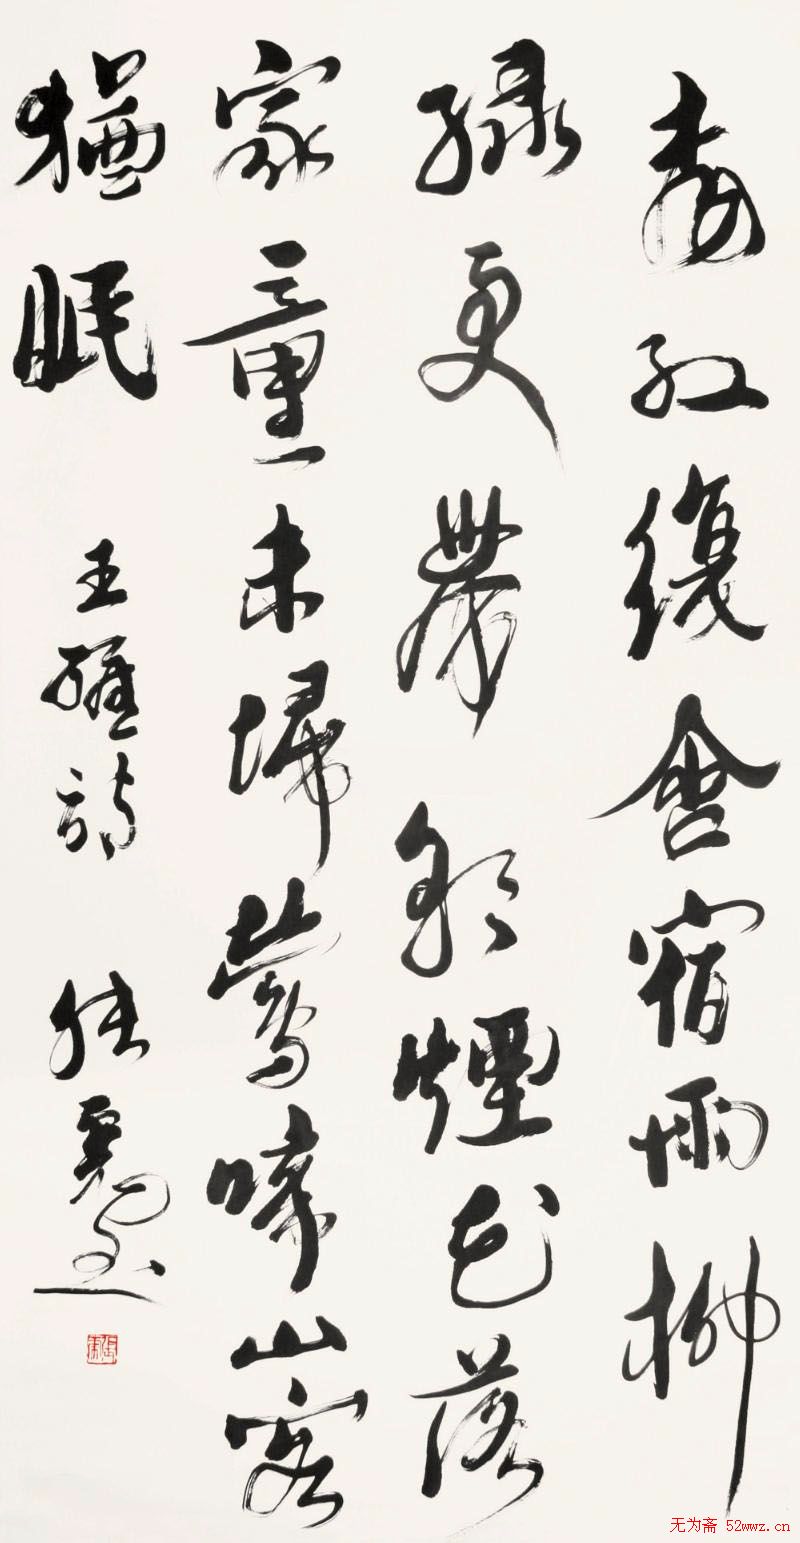 桃紅復含宿雨柳
綠更帶朝煙花落
家童未掃鶯啼山客
猶眠
王維詩
張
无为斋 52wwz.cn